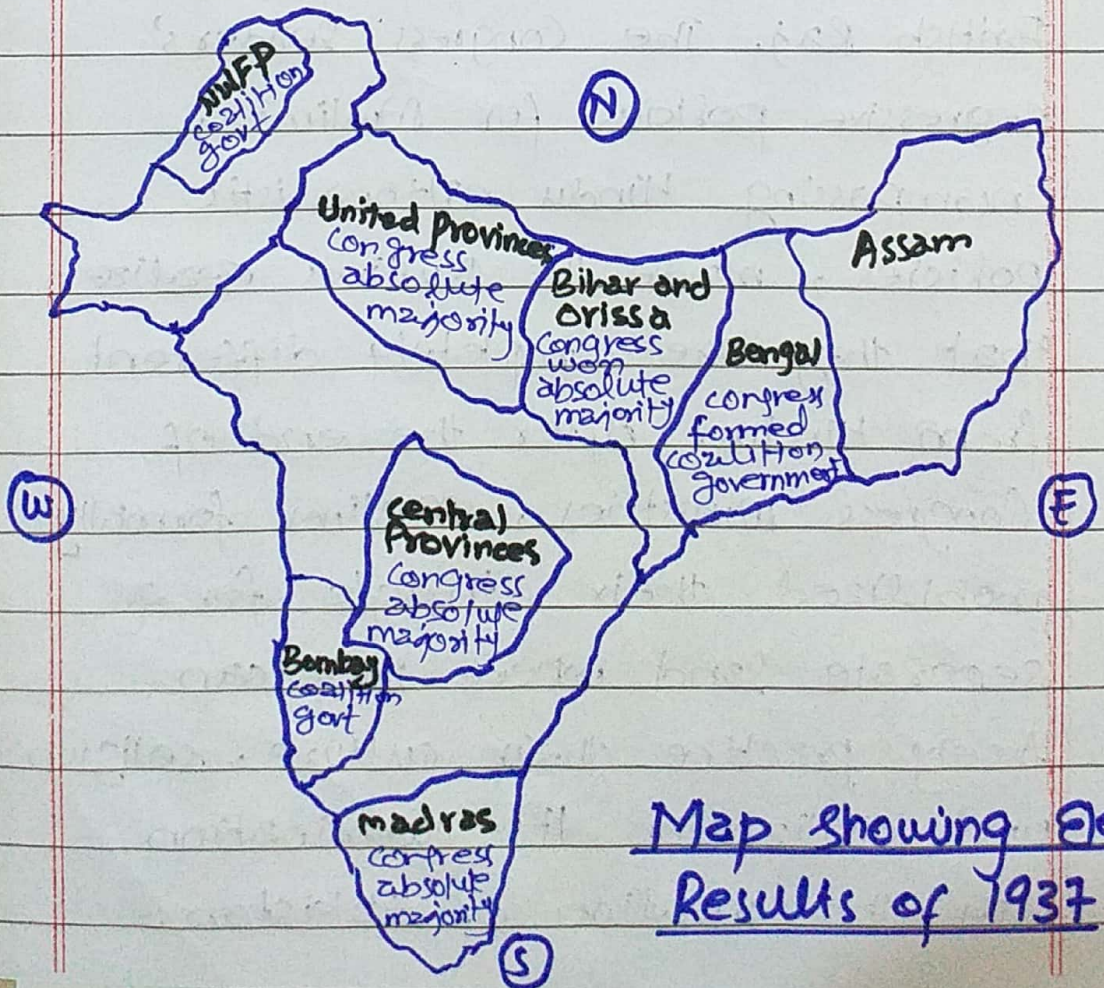 N
NWFP
coalition
govt
United Provinces
congress
absolute
majority
Bihar and
Orissa
congress
won
absolute
majority
Bengal
congress
formed
coalition
government
Assam
W
E
Central
Provinces
Congress
absolute
majority
Bombay
coalition
govt
madras
congress
absolute
majority
S
Map showing
Results of 1937